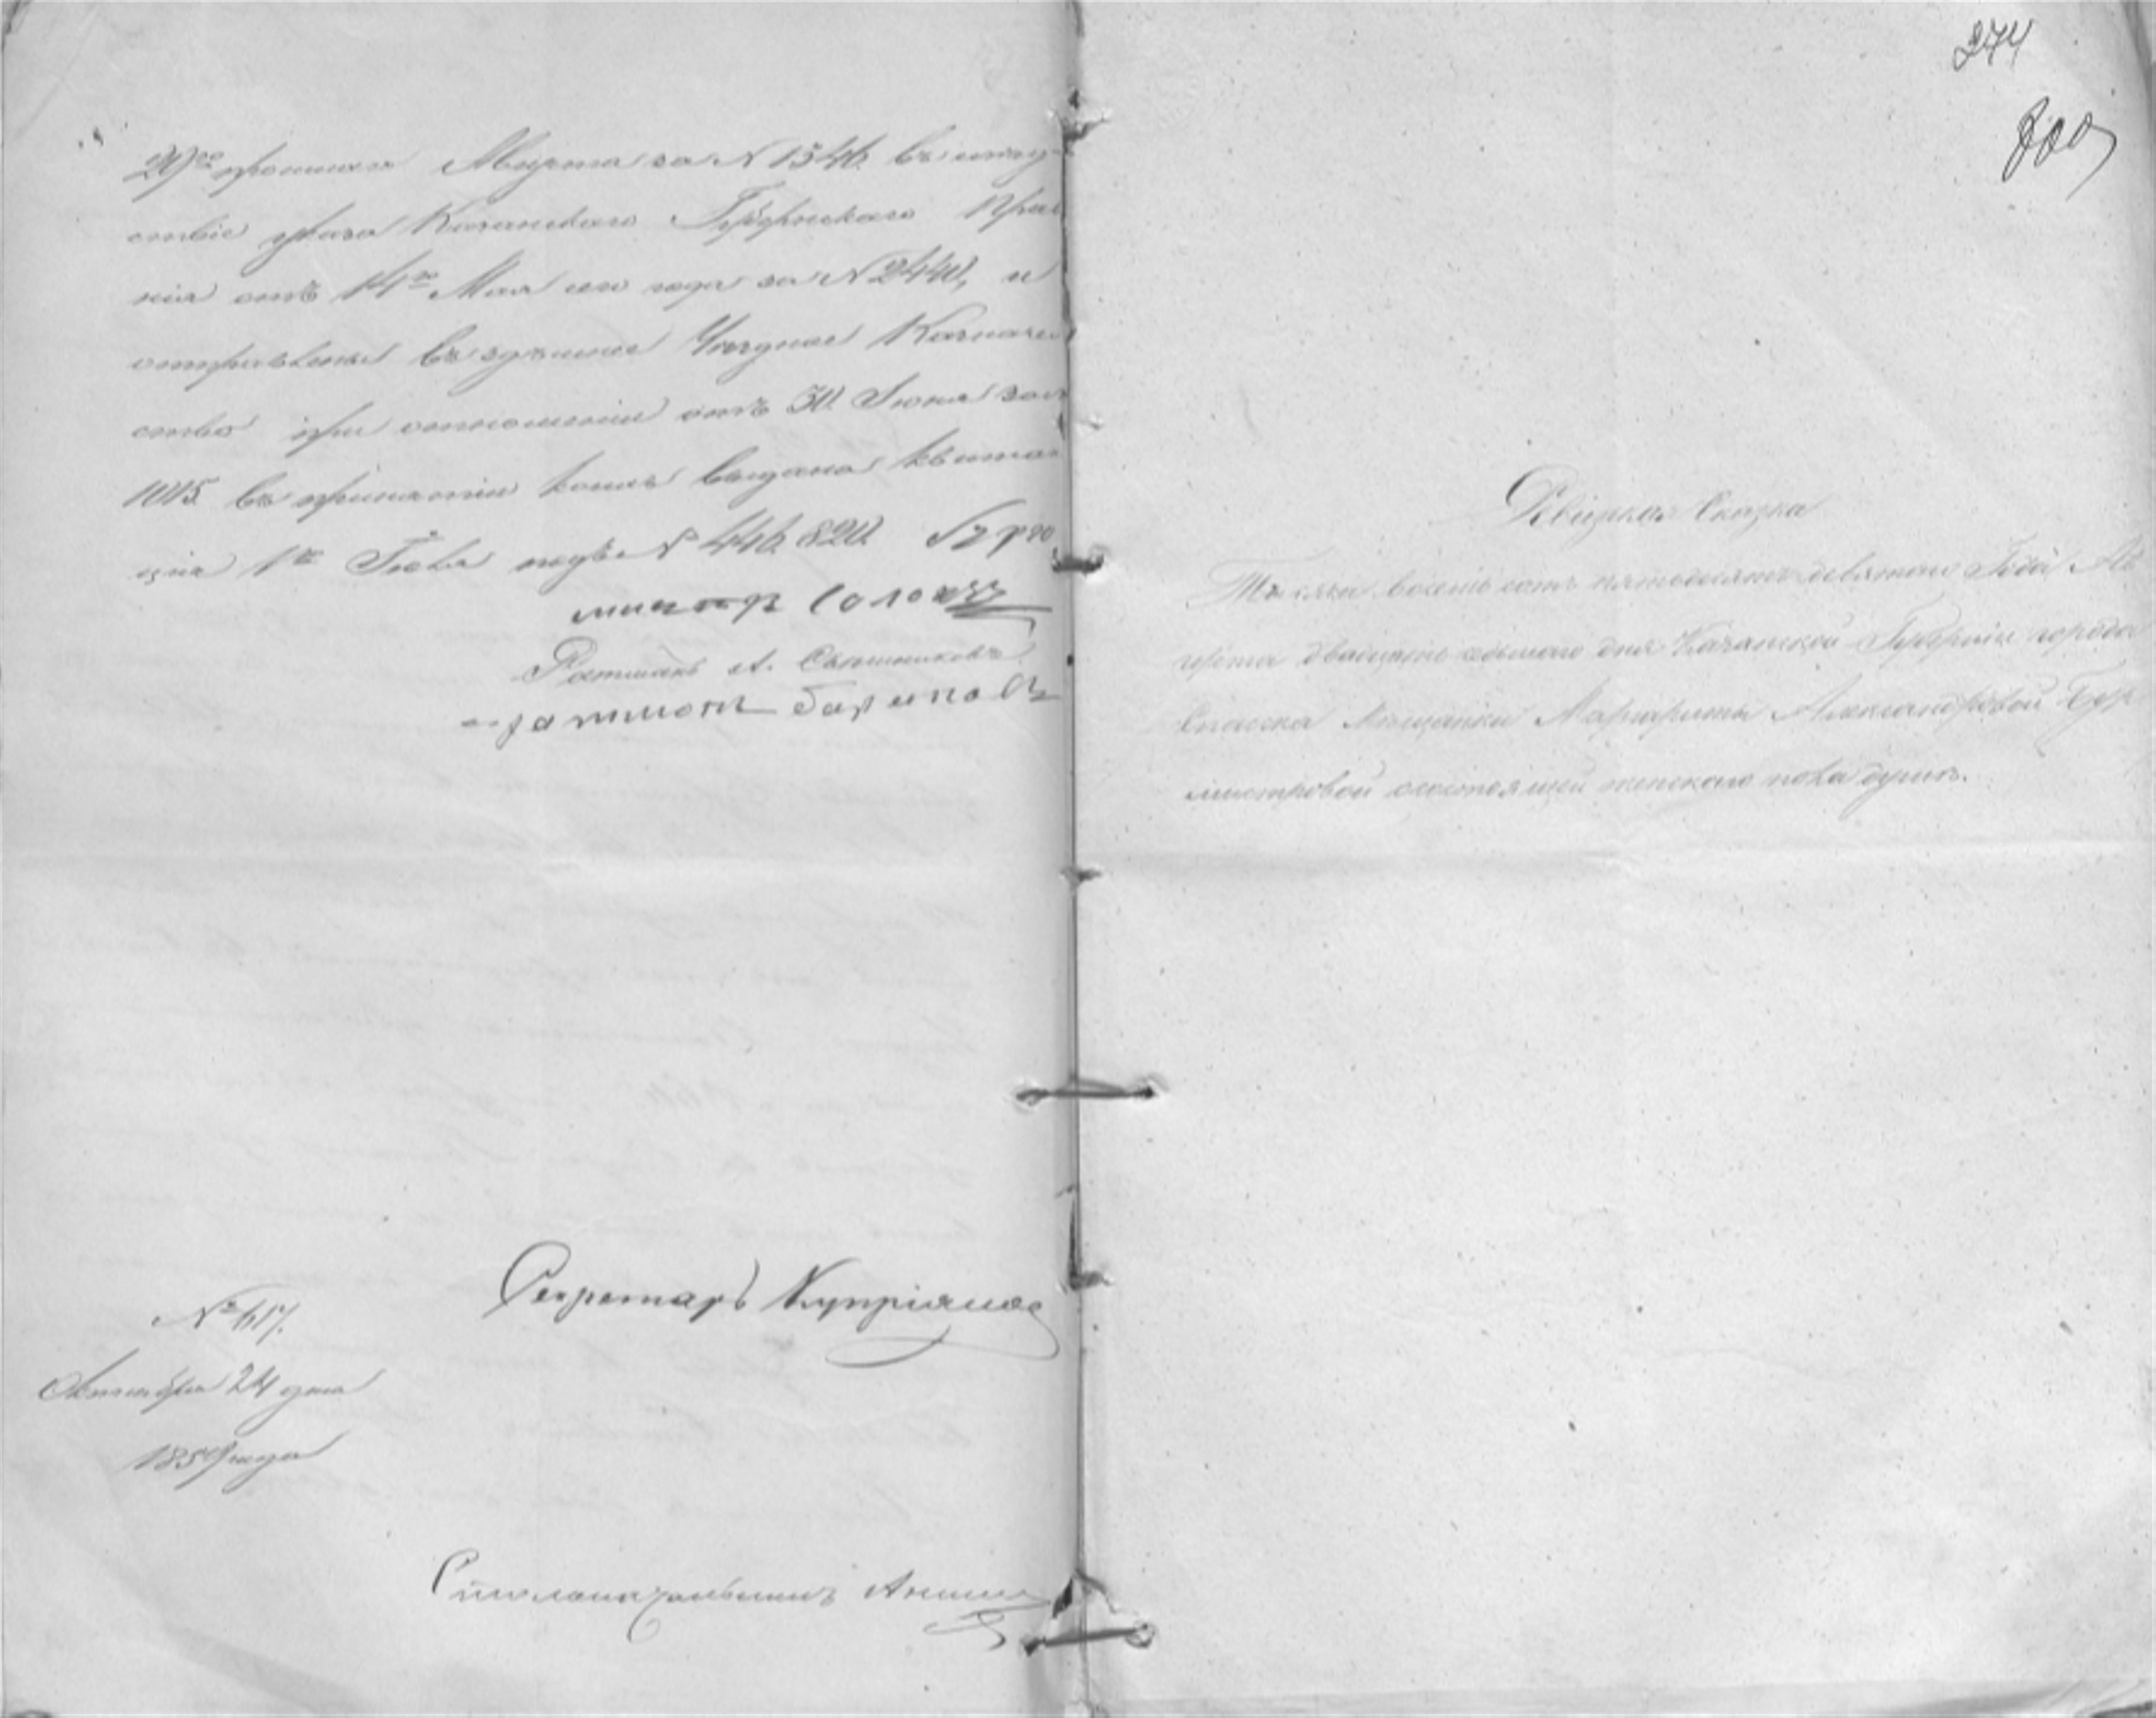 29го прошлаго Марта за № 1546. въ послѣд
ствіе указа Казанскаго Губернскаго Прав
нія отъ 14го Мая сего года за № 2440, и
отправлены въ здѣшнее Уѣздное Казначей
ство при отношеніи отъ 30. Іюня за №
1015 въ принятіи коихъ выдана квитан
ція 1го Іюля подъ № 446.820. Бурго
мистръ
Ратманъ А. Свѣшниковъ
ратманъ Бариновъ
Секретарь Купріянов
№ 617.
Октября 24 дня
1859 года
Столоначальникъ
274
800
Ревизкая Сказка
Тысяча восемь сотъ пятьдесятъ девятого Года
двадцать седьмаго дня Казанской Губерніи города
Спаска Мѣщанки Маргариты Александровой Бур
мистровой состоящей женскаго пола душъ.